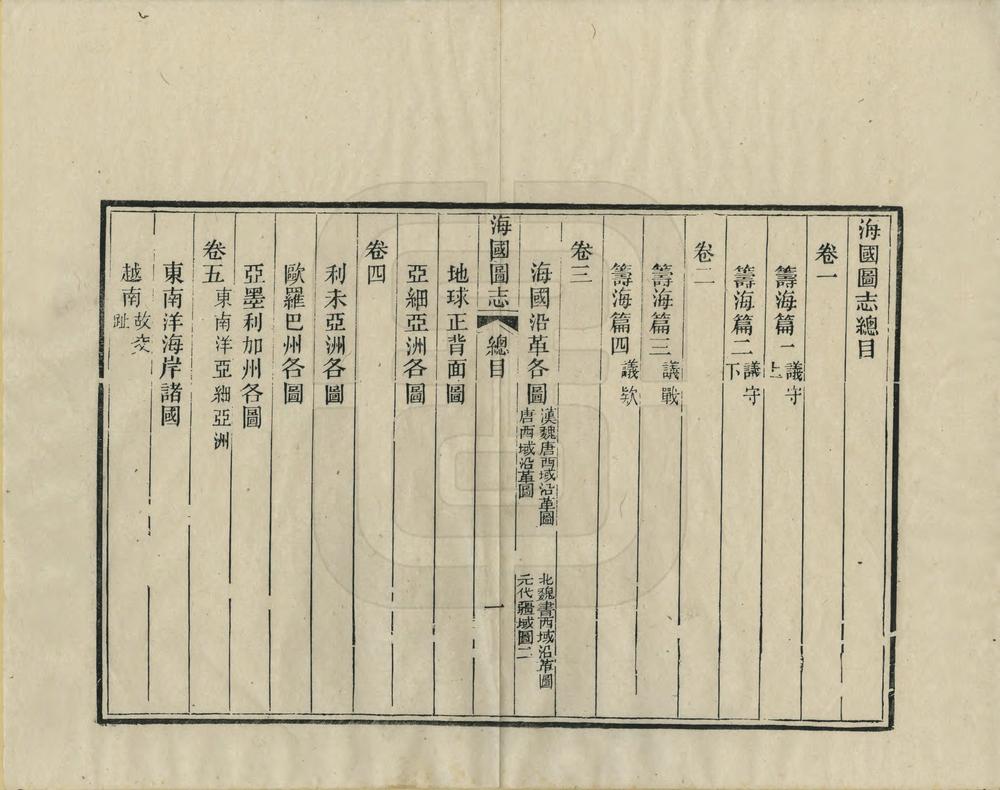 海國圖志總目
卷一
籌海篇一議守上
籌海篇二議守下
卷二
籌海篇三議戰
籌海篇四議欵
卷三
海國沿革各圖
漢魏唐西域沿革圖
北魏書西域沿革圖
唐西域沿革圖
元代疆域圖二
海國圖志 總目 一
地球正背面圖
亞細亞洲各圖
卷四
利未亞洲各圖
歐羅巴州各圖
亞墨利加州各圖
卷五東南洋亞細亞洲
東南洋海岸諸國
越南故交趾